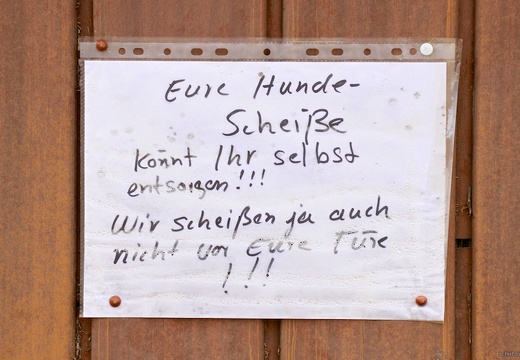 Eure Hunde-
Scheiße
könnt Ihr selbst
entsorgen!!!
Wir scheißen ja auch
nicht vor Eure Türe
!!!